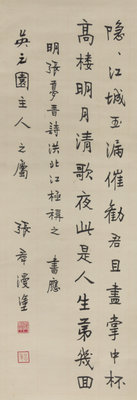 隐隐江城玉漏催劝君且尽掌中杯
高楼明月清歌夜此是人生第几回
明张梦晋诗洪北江极称之 书应
吴云园主人之属
张孝